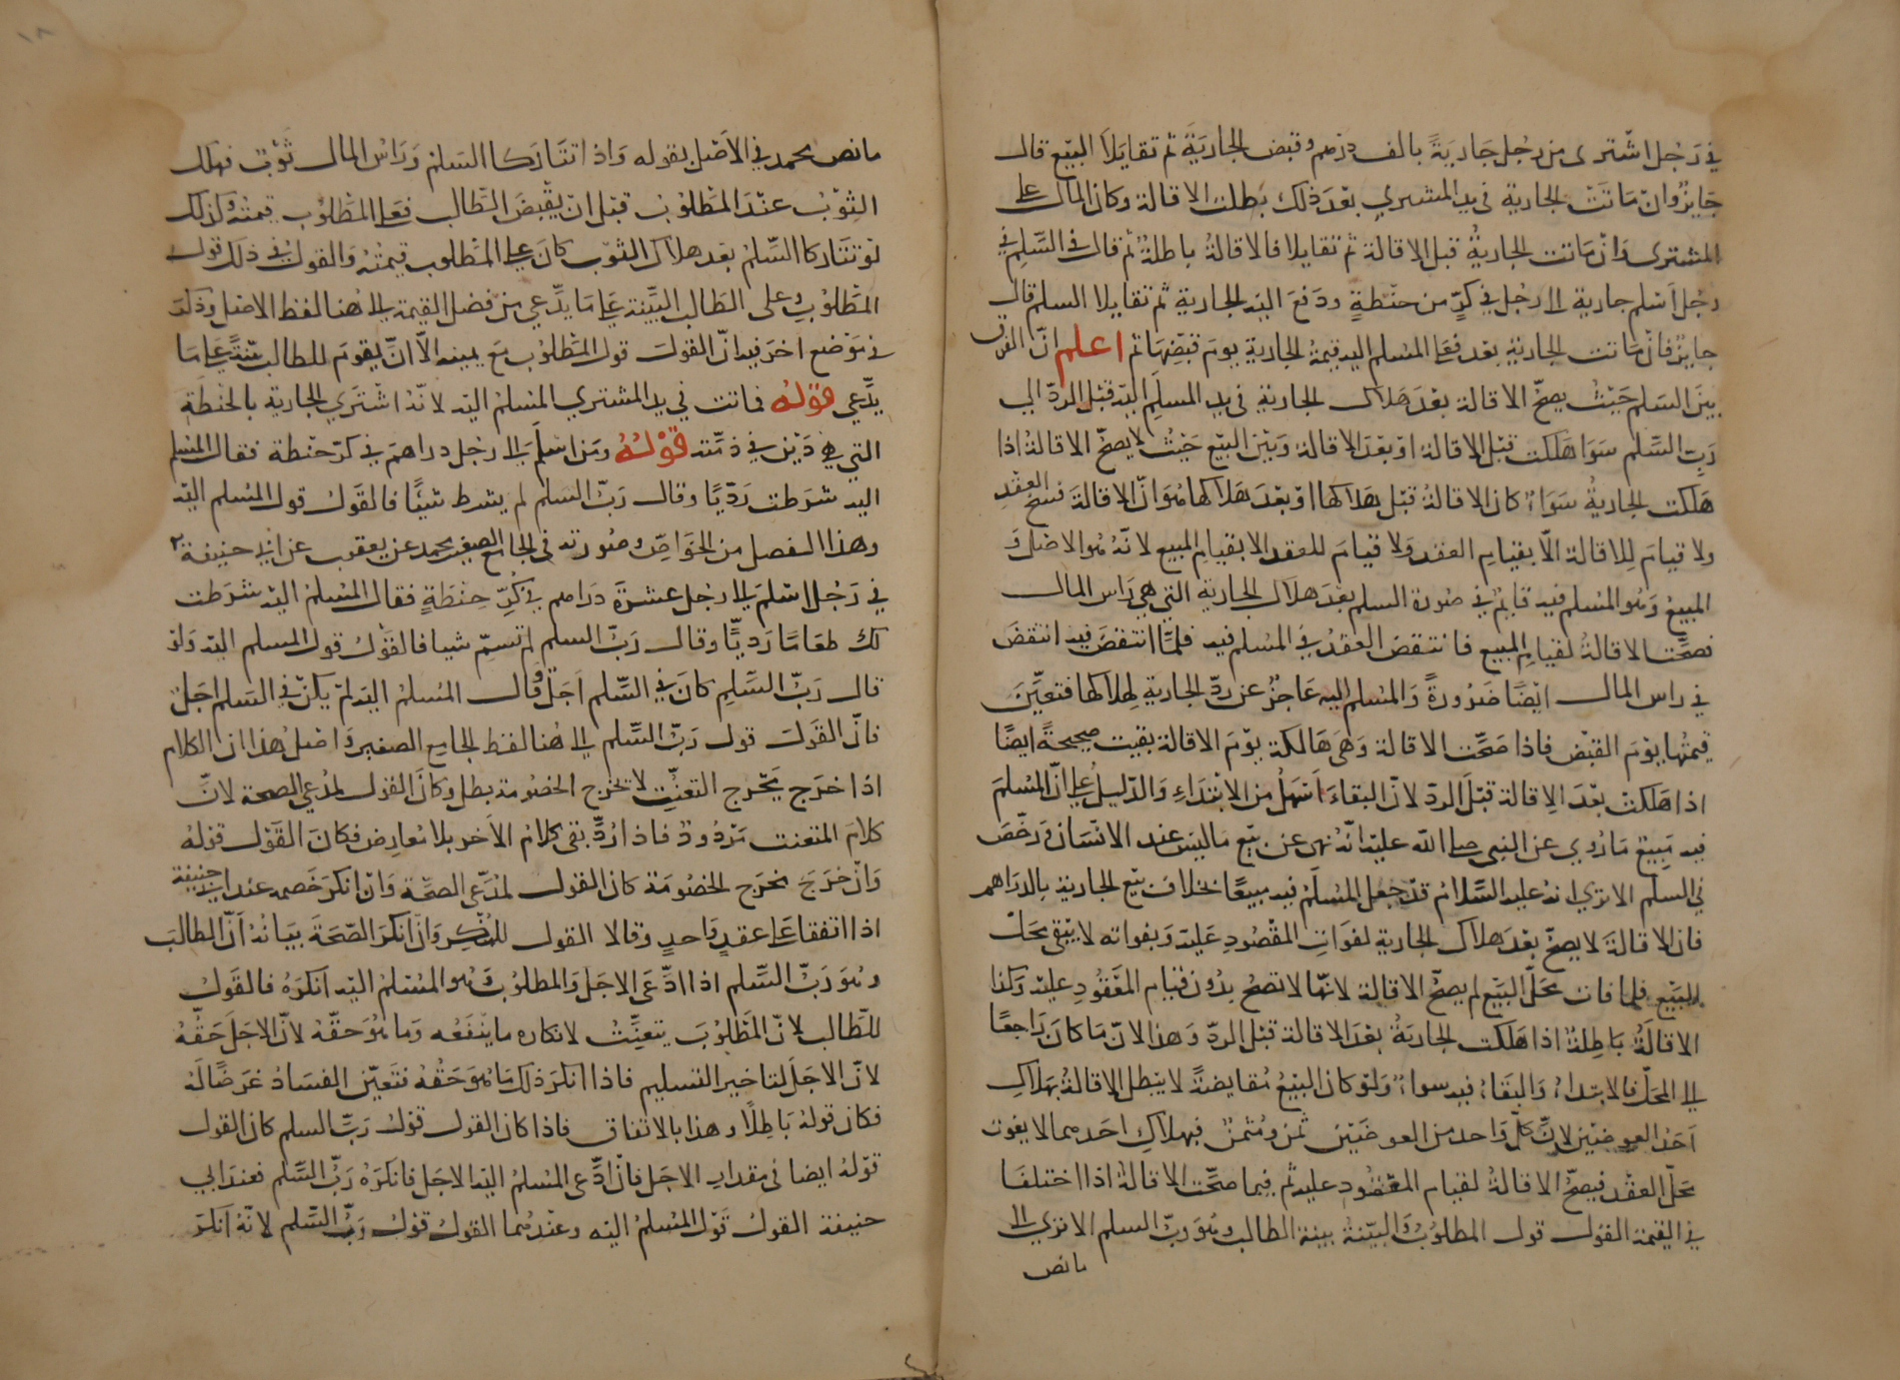 في رجل اشترى من رجل جارية بالف درهم وقبض الجارية ثم تقايلا البيع قال
جايز وان ماتت الجارية في يد المشتري بعد ذلك بطلت الاقالة وكان المال على
المشترى وان ماتت الجارية قبل الاقالة ثم تقايلا فالاقالة باطلة ثم قال في السلم في
رجل اسلم جارية الى رجل في كر من حنطة ودفع اليه الجارية ثم تقايلا السلم قال
جايز فان ماتت الجارية بعد فعلى المسلم اليه قيمة الجارية يوم قبضها ثم اعلم ان الفرق
بين السلم حيث يصح الاقالة بعد هلاك الجارية في يد المسلم اليه قبل الرد الى
رب السلم سوا هلكت قبل الاقالة او بعد الاقالة وبين البيع حيث لا يصح الاقالة اذا
هلكت الجارية سواء كان الاقالة قبل هلاكها او بعد هلاكها هو ان الاقالة فسخ العقد
ولا قيام للاقالة الا بقيام العقد ولا قيام للعقد الا بقيام المبيع لانه هو الاصل و
المبيع وهو المسلم فيه قايم في صورة السلم بعد هلاك الجارية التي هي راس المال
فصحت الاقالة لقيام المبيع فانتقض العقد في المسلم فيه فلما انتقض فيه انتقض
في راس المال ايضا ضرورة والمسلم اليه عاجز عن رد الجارية لهلاكها فتعين
قيمتها يوم القبض فاذا صحت الاقالة وهي هالكة يوم الاقالة بقيت صحيحة ايضا
اذا هلكت بعد الاقالة قبل الرد لان البقاء اسهل من الابتداء والدليل على ان المسلم
فيه مبيع ما روي عن النبي صلى الله عليه انه نهى عن بيع ما ليس عند الانسان ورخص
في السلم الا ترى انه عليه السلام قد جعل المسلم فيه مبيعا بخلاف بيع الجارية بالدراهم
فان الاقالة لا يصح بعد هلاك الجارية لفوات المقصود عليه وبفواته لا يبقى محل
للبيع فلما فات محل البيع لم يصح الاقالة لانها لا تصح بدون قيام المعقود عليه وكذا
الاقالة باطلة اذا هلكت الجارية بعد الاقالة قبل الرد وهذا لان ما كان راجعا
الى المحل فالابتداء والبقاء فيه سواء ولو كان البيع مقايضة لا يبطل الاقالة بهلاك
احد العوضين لان كل واحد من العوضين ثمن ومثمن فبهلاك احدهما لا يفوت
محل العقد فيصح الاقالة لقيام المعقود عليه ثم فيما صحت الاقالة اذا اختلفا
في القيمة القول قول المطلوب والبينة بينة الطالب وهو رب السلم الا ترى الى
ما نص
ما نص محمد في الاصل بقوله واذا تتاركا السلم وراس المال ثوب فهلك
الثوب عند المطلوب قبل ان يقبض الطالب فعلى المطلوب قيمته وكذلك
لو تتاركا السلم بعد هلاك الثوب كان على المطلوب قيمته والقول في ذلك قول
المطلوب وعلى الطالب البينة على ما يدعي من فضل القيمة الى هنا لفظ الاصل وذكر
في موضع اخر فيه ان القول قول المطلوب مع يمينه الا ان يقوم للطالب بينة على ما
يدعي قوله فماتت في يد المشتري المسلم اليه لانه اشترى الجارية بالحنطة
التي هي دين في ذمته قوله ومن اسلم الى رجل دراهم في كر حنطة فقال المسلم
اليه شرطت رديا وقال رب السلم لم يشرط شيئا فالقول قول المسلم اليه
وهذا الفصل من الخواص وصورته في الجامع الصغير محمد عن يعقوب عن ابي حنيفة
في رجل اسلم الى رجل عشرة دراهم في كر حنطة فقال المسلم اليه شرطت
لك طعاما رديا وقال رب السلم لم تسم شيا فالقول قول المسلم اليه ولو
قال رب السلم كان في السلم اجل وقال المسلم اليه لم يكن في السلم اجل
فان القول قول رب السلم الى هنا لفظ الجامع الصغير واصل هذا ان الكلام
اذا خرج مخرج التعنت لا مخرج الخصومة بطل وكان القول لمدعي الصحة لان
كلام المتعنت مردود فاذا رد بقي كلام الاخر بلا معارض فكان القول قوله
وان خرج مخرج الخصومة كان القول لمدعي الصحة وان انكر خصمه عند ابي حنيفة
اذا اتفقا على عقد واحد وقالا القول للمنكر وان انكر الصحة بيانه ان الطالب
وهو رب السلم اذا ادعى الاجل والمطلوب وهو المسلم اليه انكره فالقول
للطالب لان المطلوب يتعنت لانكاره ما ينفعه وما هو حقه لان الاجل حقه
لان الاجل لتاخير التسليم فاذا انكر ذلك ما هو حقه فتعين الفساد غرضا له
فكان قوله باطلا وهذا بالاتفاق فاذا كان القول قول رب السلم كان القول
قوله ايضا في مقدار الاجل فان ادعى المسلم اليه الاجل فانكره رب السلم فعند ابي
حنيفة القول قول المسلم اليه وعندهما القول قول رب السلم لانه انكر
١٨